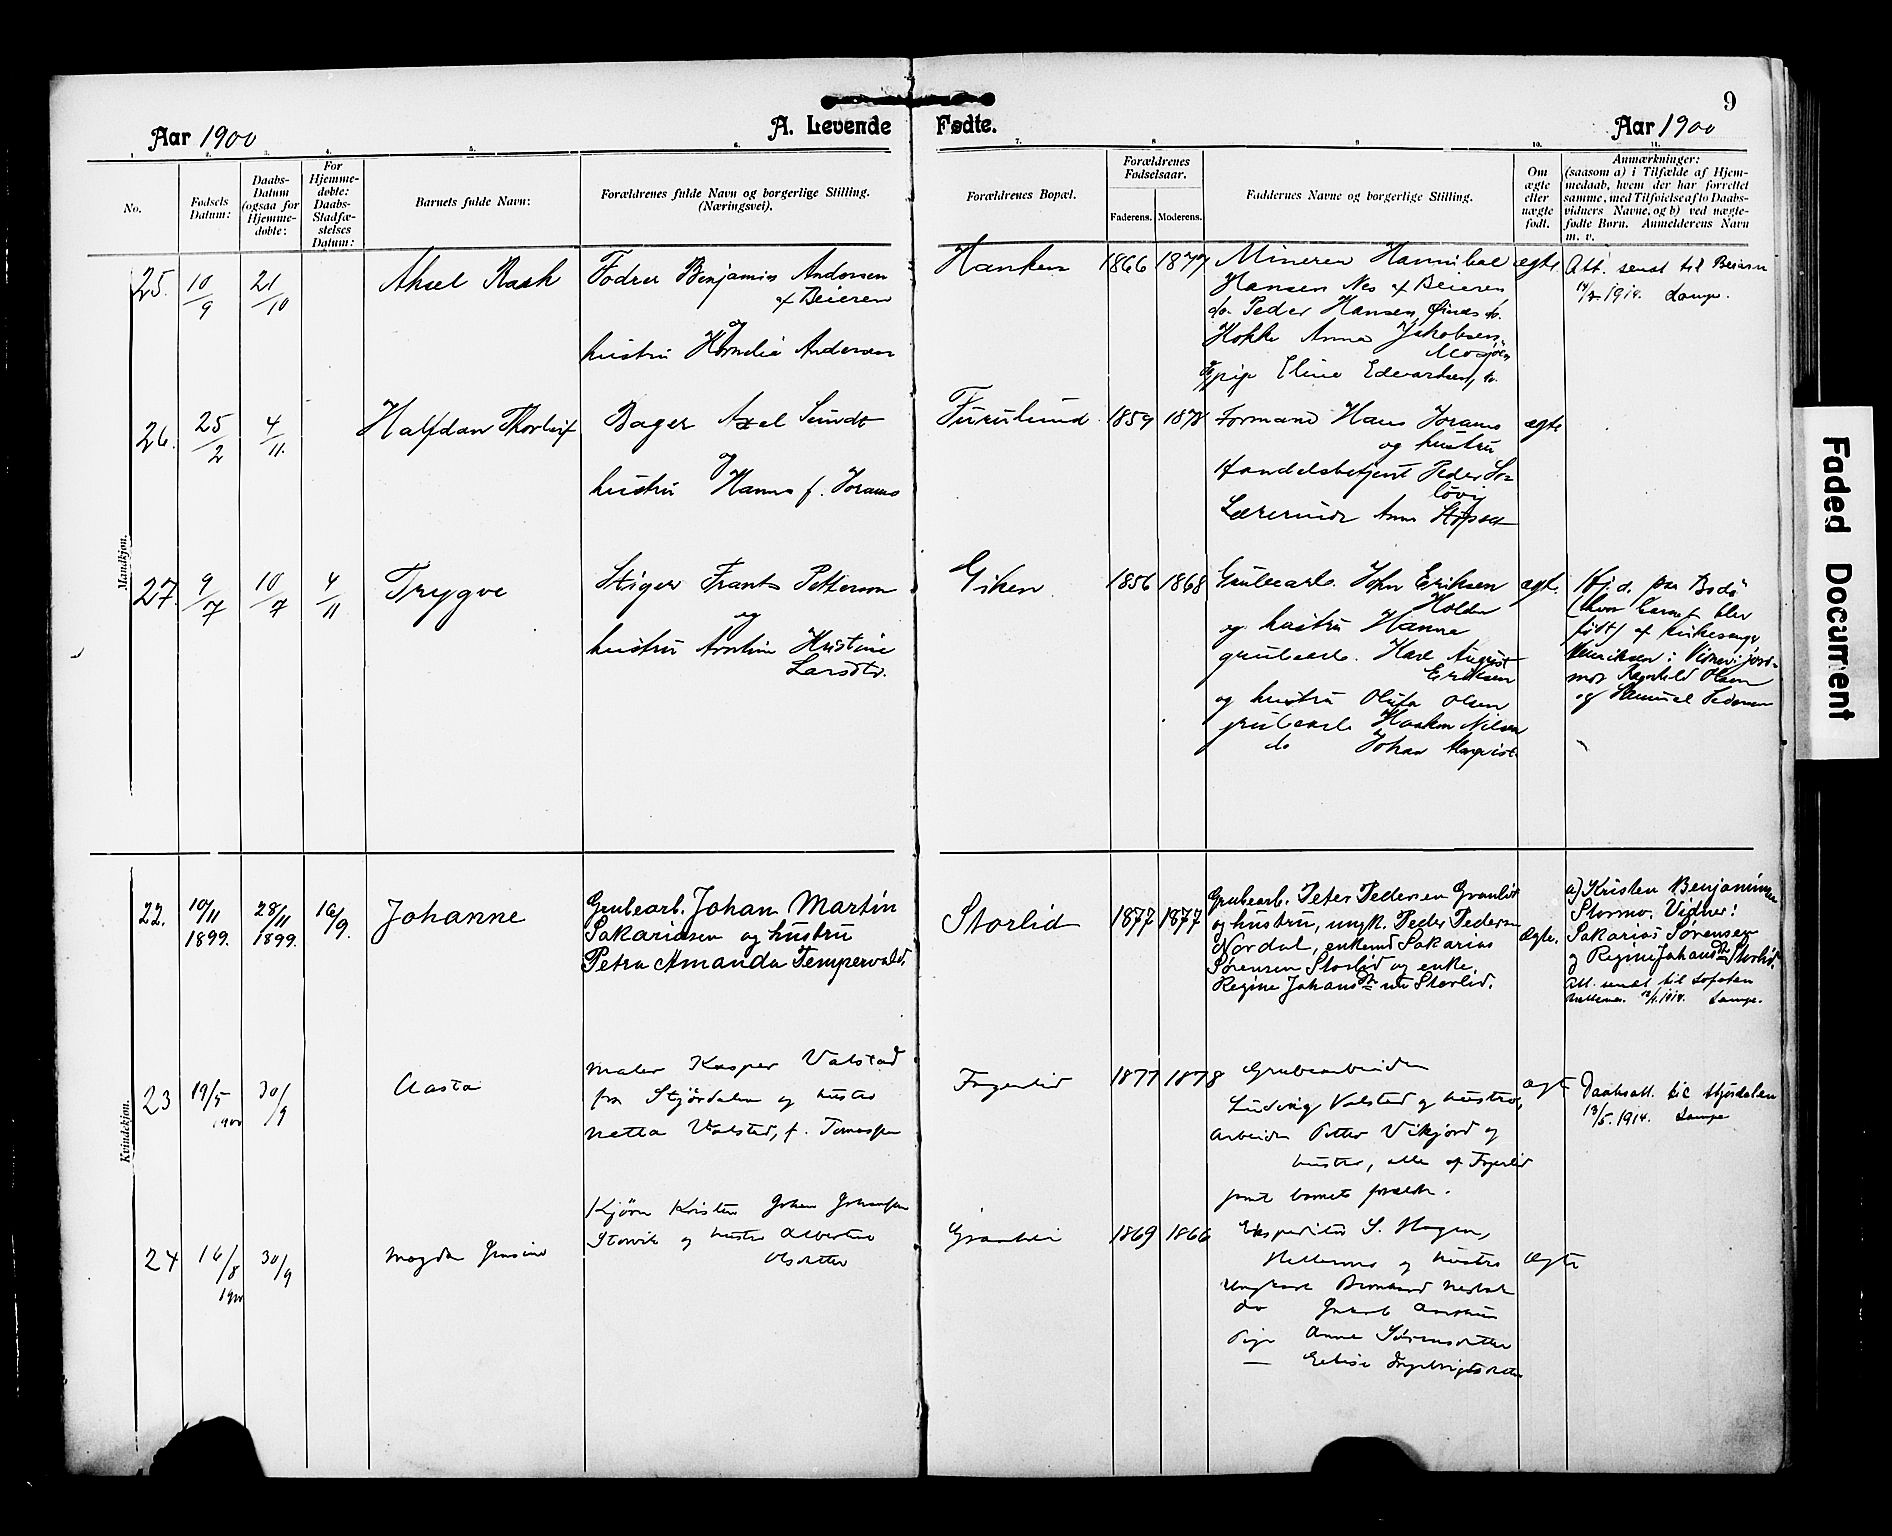 9
Aar 1900
A. Levende Fødte.
Aar 1900
1. 2. 3. 4. 5. 6. 7. 8. 9. 10. 11.
No.
Fødsels Datum:
Daabs-
Datum
(ogsaa for
Hjemme-
døbte:
For
Hjemme-
døbte:
Daabs-
Stadfæ-
stelses
Datum:
Barnets fulde Navn:
Forældrenes fulde Navn og borgerlige Stilling.
(Næringsvei).
Forældrenes Bopæl.
Forældrenes
Fødselsaar.
Faderens. Moderens.
Faddernes Navne og borgerlige Stilling.
Om
ægte
eller
uægte
født.
Anmærkninger:
(saasom a) i Tilfælde af Hjem-
medaab, hvem der har forrettet
samme, med Tilføielse af to Daabs-
vidners Navne, og b) ved uægte-
fødte Børn. Anmelderens Navn
m. v.
Mandkjøn.
25. 10/9 21/10
Aksel Rask
Fodrer Benjamin Andersen
af Beieren
og
hustru Kornelia Andersen
Hanken
1866 1877
Minerer Hannibal
Hansen Nes af Beieren
do. Peder Hansen,
Kokke Anna Jakobsen
Mosjøen
pige Eline Edvardsen, do.
ægte
Att. sendt til Beiarn
1914. Lampe.
26. 25/2 4/11.
Halfdan Thorleif
Bager Axel Sundt
og
hustru Hanna f. Jorams
Furulund
1859 1878
Formand Hans Jorams
og hustru
Handelsbetjent Peder
Lærerinde Anna
ægte
27. 9/7 10/7 4/11
Trygve
Stiger Frants Petterson
og
hustru Kristine
Larsdtr.
Giken
1856 1868
Grubearb. John Eriksen
Holden
og hustru Hanna
grubearb. Karl August
Eriksen
og hustru Olufa Olsen
grubearb. Haakon Nilsen
do Johan
ægte.
Hj.d. paa Bodø
(hvor barnet blev
født) af kirkesanger
Henriksen; Vidner: jord-
mor Ragnhild Olsen
og Samuel Pedersen
Kvindekjøn.
22. 10/11 1899. 28/11 1899. 16/9.
Johanne
Grubearb. Johan Martin
Sakariasen og hustru
Petra Amanda Tempervold.
Storlid
1877 1877
Grubearb. Peter Pedersen Granlid
og hustru, ungk. Peder Pedersen
Nordal, enkemd Sakarias
Sørensen Storlid og enke.
Regine Johansdtr Storlid.
Ægte.
a) Kristen Benjaminsen
Stormo. Vidner:
Sakarias Sørensen
og Regine Johansdtr Storlid.
Att. sendt til Lofoten
1914. Lampe.
23 19/5 1900 30/9
Aasta
Maler Kasper Valstad
fra Stjørdalen og hustru
Netta Valstad, f. Tomassen
Fagerlid
1877 1878
Grubearbeider
Ludvig Valstad og hustru,
Arbeider Petter Vikjord og
hustru, alle af Fagerlid
samt barnets forældre.
ægte
Daabsatt. til Stjørdalen
13/5. 1914. Lampe
24 16/8 1900 30/9
Magda
Kjører Kristen Johan Johansen
Storvik og hustru Albertine
Olsdatter
Granhei
1869 1866
Ekspeditør S. Hagen,
Hellarmo og hustru
Ungkarl Bernhard
do
Pige Anna Sørensdatter
— Elise Ingebrigtsdatter
Ægte
Faded Document